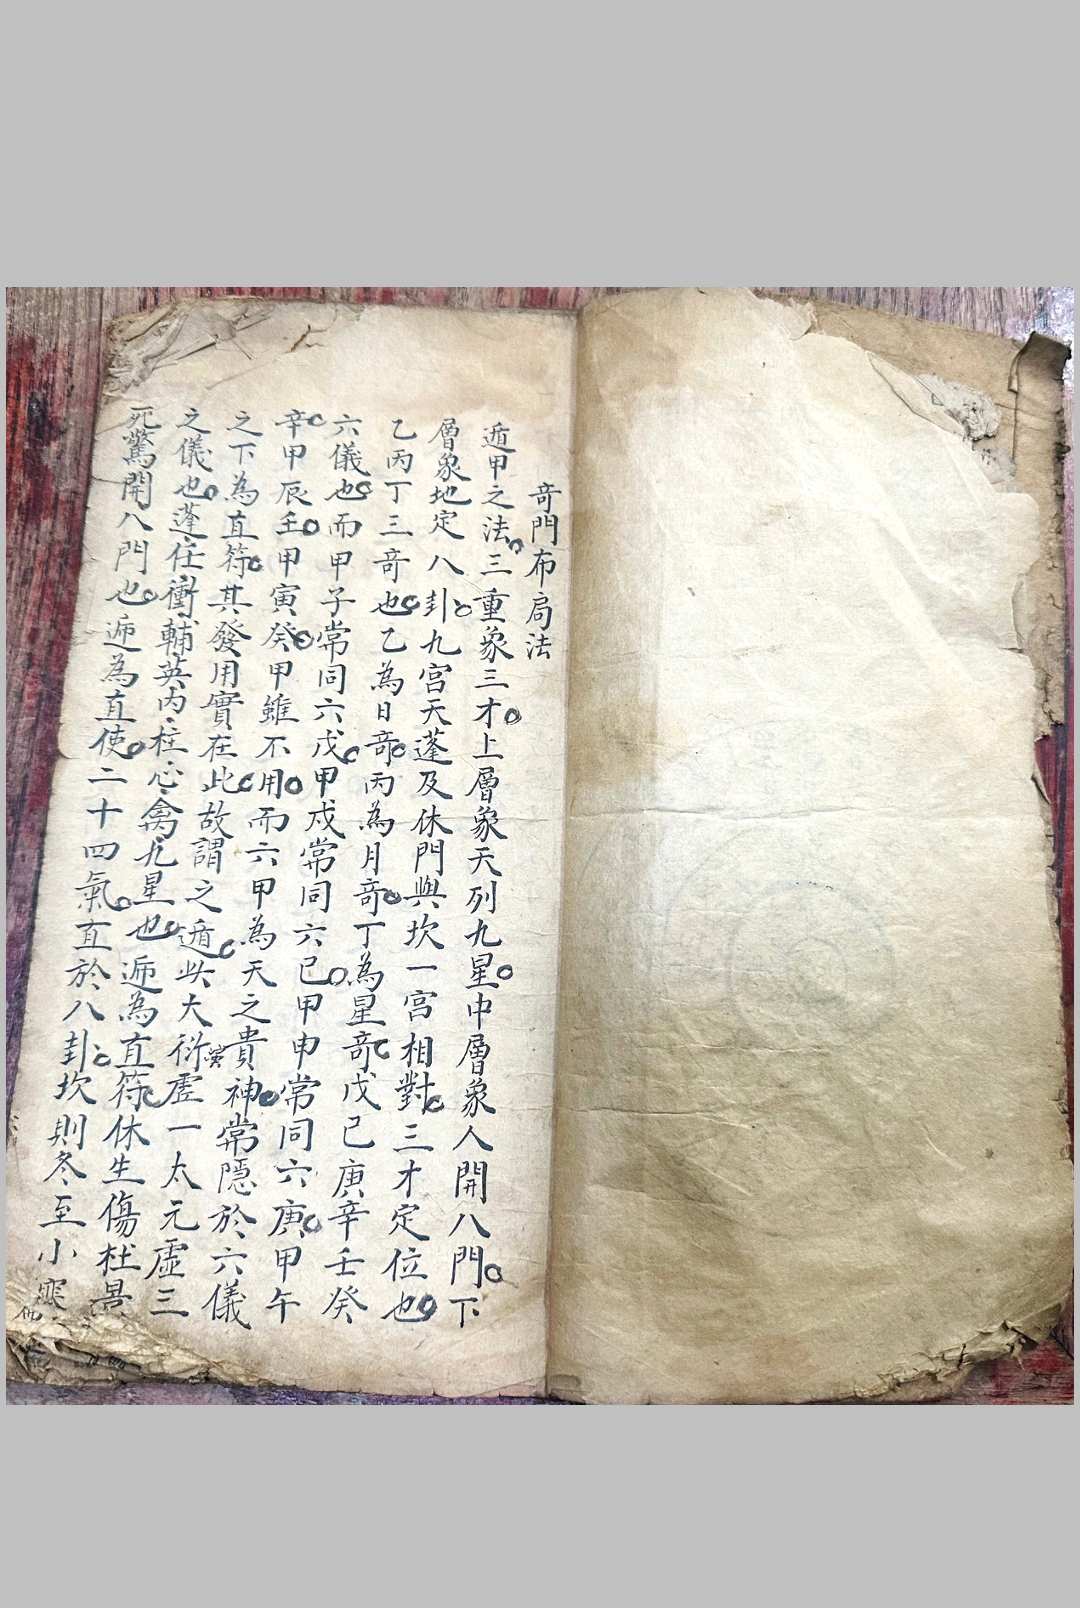 奇門布局法
遁甲之法。三重象三才。上層象天列九星。中層象人開八門。下
層象地定八卦。九宮天蓬及休門與坎一宮相對。三才定位也。
乙丙丁三奇也。乙為日奇。丙為月奇。丁為星奇。戊己庚辛壬癸
六儀也。而甲子常同六戊。甲戌常同六己。甲申常同六庚。甲午
辛。甲辰壬。甲寅癸。甲雖不用。而六甲為天之貴神。常隱於六儀
之下為直符。其發用實在此。故謂之遁。此大衍虛一太元虛三
之儀也。蓬任衝輔英內柱心禽九星也。遞為直符。休生傷杜景
死驚開八門也。遞為直使。二十四氣。直於八卦。坎則冬至小寒